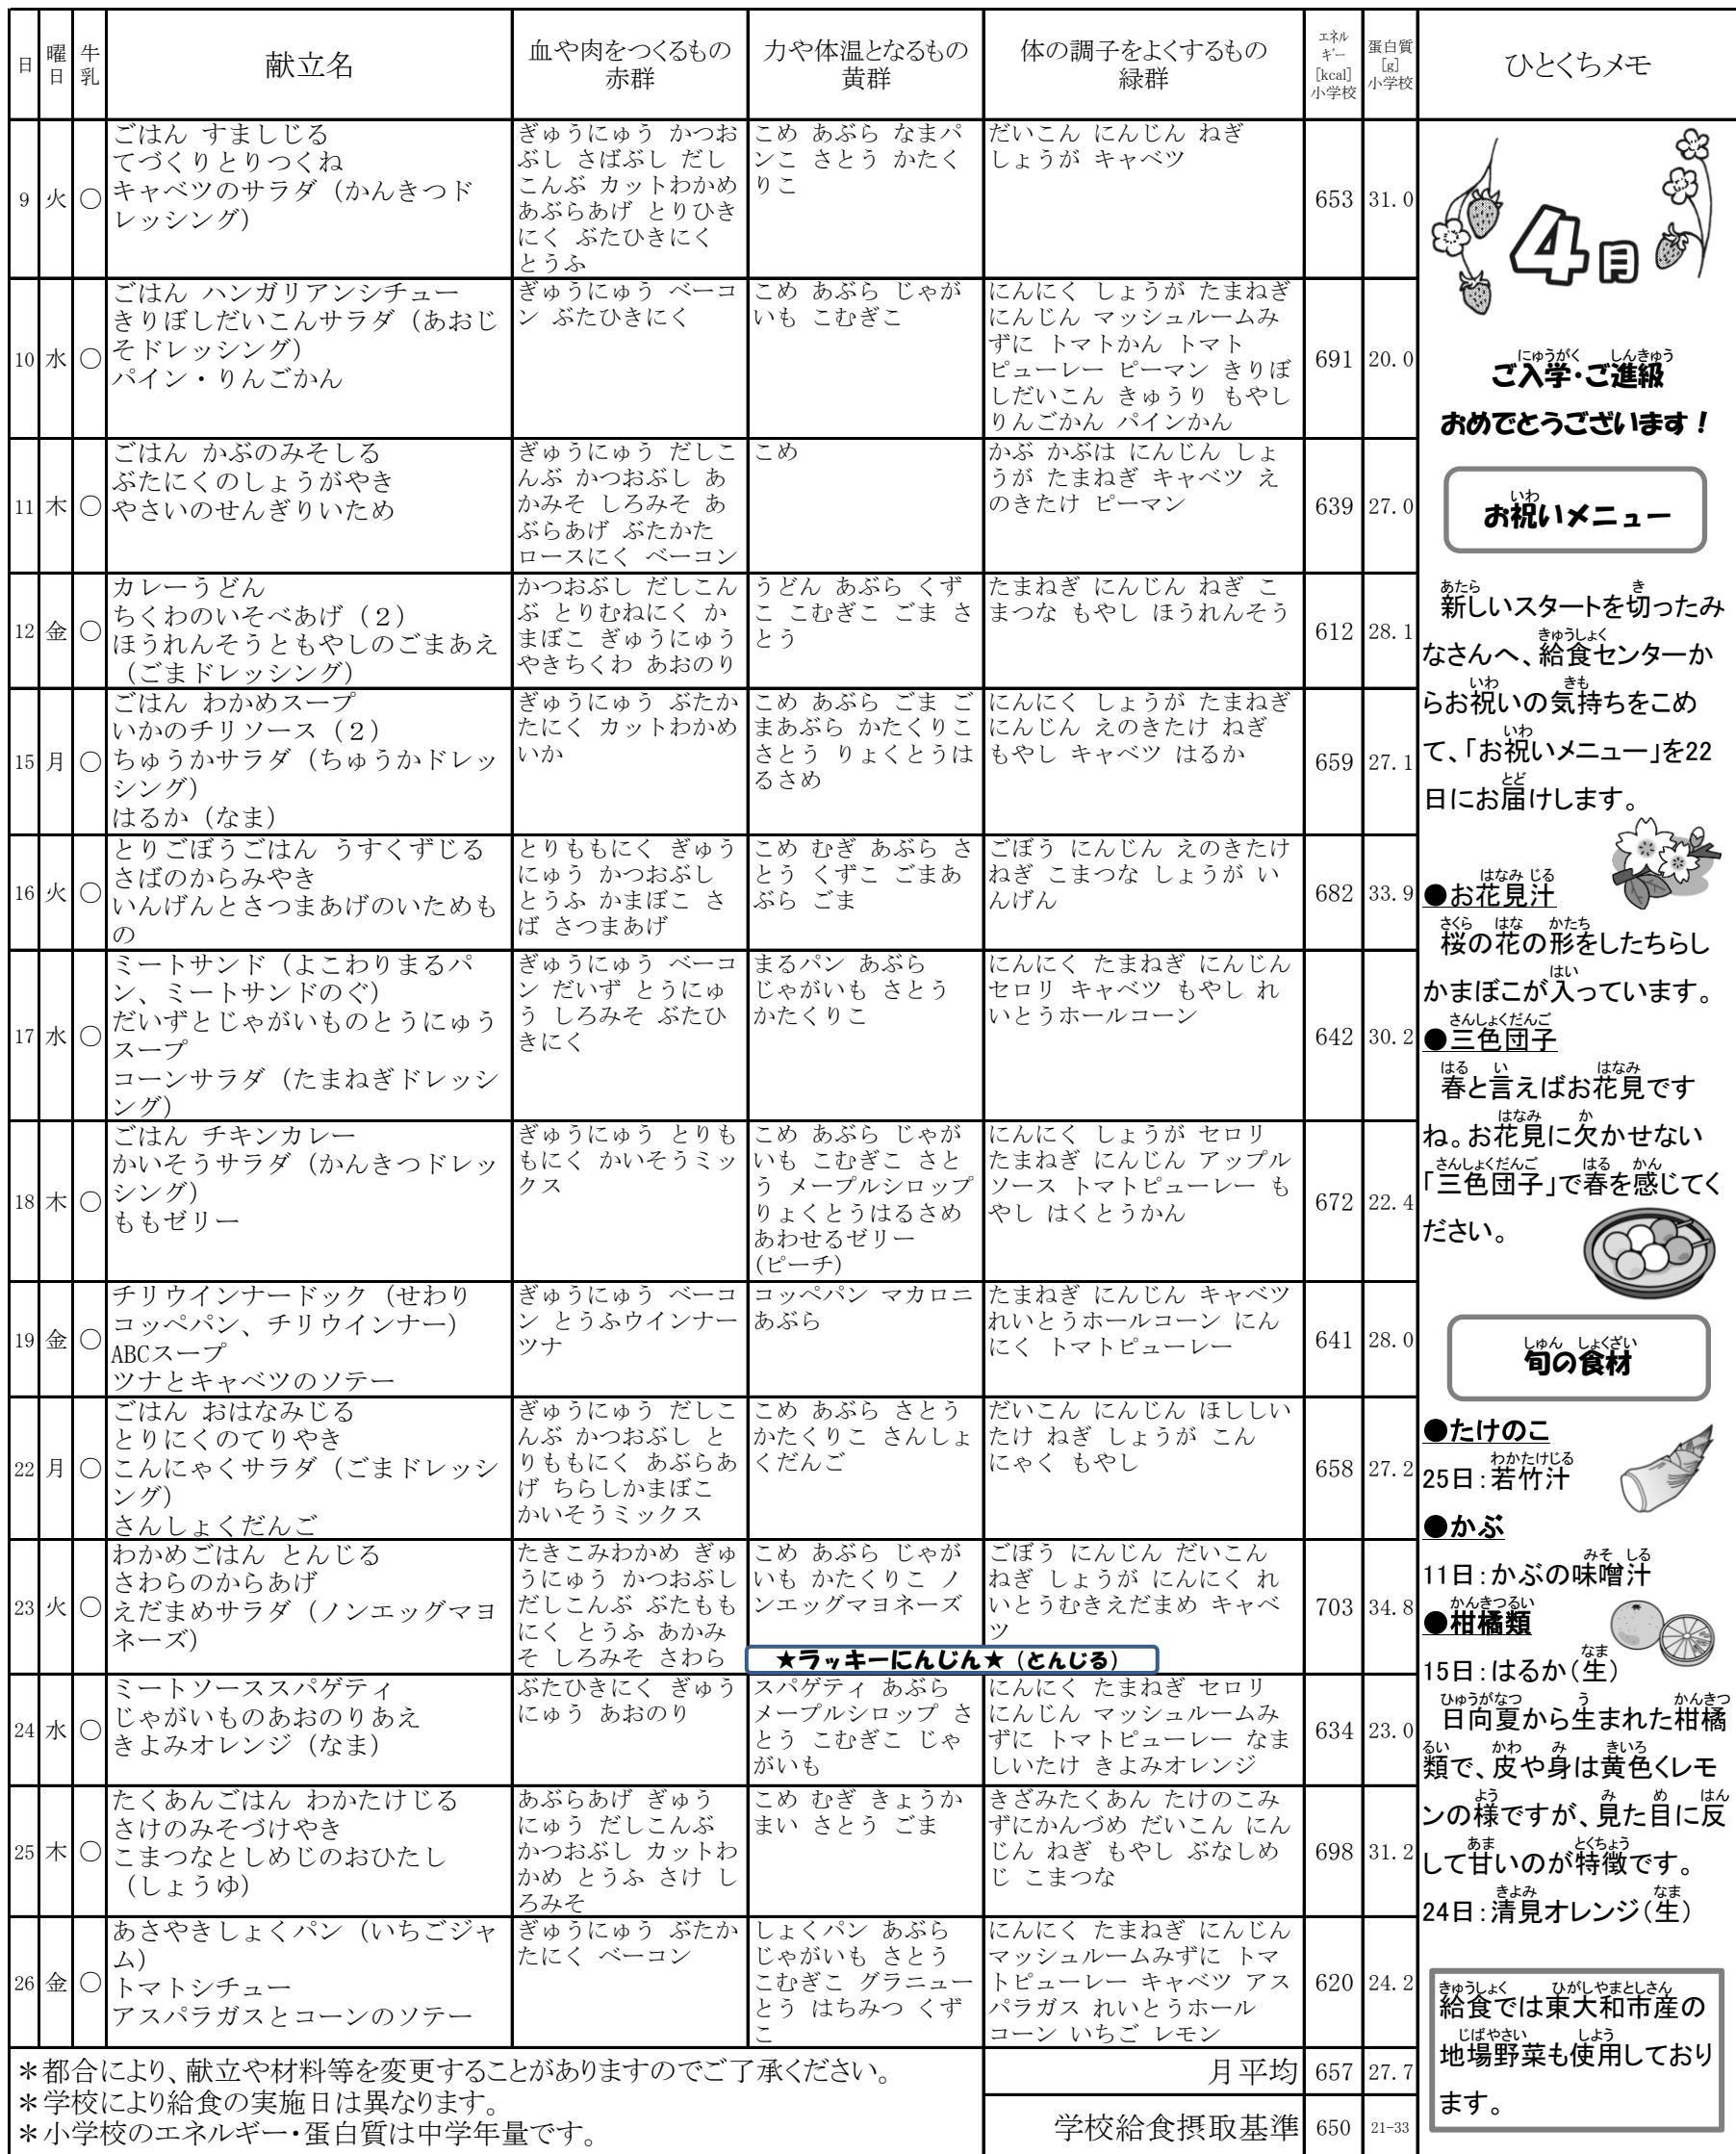 日 曜日 牛乳 献立名 血や肉をつくるもの 赤群 力や体温となるもの 黄群 体の調子をよくするもの 緑群 エネルギー[kcal]小学校 蛋白質[g]小学校 ひとくちメモ
9 火 ○
ごはん すましじる
てづくりとりつくね
キャベツのサラダ（かんきつド
レッシング）
ぎゅうにゅう かつお
ぶし さばぶし だし
こんぶ カットわかめ
あぶらあげ とりひき
にく ぶたひきにく
とうふ
こめ あぶら なまパ
ンこ さとう かたく
りこ
だいこん にんじん ねぎ
しょうが キャベツ
653 31.0
10 水 ○
ごはん ハンガリアンシチュー
きりぼしだいこんサラダ（あおじ
そドレッシング）
パイン・りんごかん
ぎゅうにゅう ベーコ
ン ぶたひきにく
こめ あぶら じゃが
いも こむぎこ
にんにく しょうが たまねぎ
にんじん マッシュルームみ
ずに トマトかん トマト
ピューレー ピーマン きりぼ
しだいこん きゅうり もやし
りんごかん パインかん
691 20.0
11 木 ○
ごはん かぶのみそしる
ぶたにくのしょうがやき
やさいのせんぎりいため
ぎゅうにゅう だしこ
んぶ かつおぶし あ
かみそ しろみそ あ
ぶらあげ ぶたかた
ロースにく ベーコン
こめ
かぶ かぶは にんじん しょ
うが たまねぎ キャベツ え
のきたけ ピーマン
639 27.0
12 金 ○
カレーうどん
ちくわのいそべあげ（２）
ほうれんそうともやしのごまあえ
（ごまドレッシング）
かつおぶし だしこん
ぶ とりむねにく か
まぼこ ぎゅうにゅう
やきちくわ あおのり
うどん あぶら くず
こ こむぎこ ごま さ
とう
たまねぎ にんじん ねぎ こ
まつな もやし ほうれんそう
612 28.1
15 月 ○
ごはん わかめスープ
いかのチリソース（２）
ちゅうかサラダ（ちゅうかドレッ
シング）
はるか（なま）
ぎゅうにゅう ぶたか
たにく カットわかめ
いか
こめ あぶら ごま ご
まあぶら かたくりこ
さとう りょくとうは
るさめ
にんにく しょうが たまねぎ
にんじん えのきたけ ねぎ
もやし キャベツ はるか
659 27.1
16 火 ○
とりごぼうごはん うすくずじる
さばのからみやき
いんげんとさつまあげのいためも
の
とりももにく ぎゅう
にゅう かつおぶし
とうふ かまぼこ さ
ば さつまあげ
こめ むぎ あぶら さ
とう くずこ ごまあ
ぶら ごま
ごぼう にんじん えのきたけ
ねぎ こまつな しょうが い
んげん
682 33.9
17 水 ○
ミートサンド（よこわりまるパ
ン、ミートサンドのぐ）
だいずとじゃがいものとうにゅう
スープ
コーンサラダ（たまねぎドレッシ
ング）
ぎゅうにゅう ベーコ
ン だいず とうにゅ
う しろみそ ぶたひ
きにく
まるパン あぶら
じゃがいも さとう
かたくりこ
にんにく たまねぎ にんじん
セロリ キャベツ もやし れ
いとうホールコーン
642 30.2
18 木 ○
ごはん チキンカレー
かいそうサラダ（かんきつドレッ
シング）
ももゼリー
ぎゅうにゅう とりも
もにく かいそうミッ
クス
こめ あぶら じゃが
いも こむぎこ さと
う メープルシロップ
りょくとうはるさめ
あわせるゼリー
（ピーチ）
にんにく しょうが セロリ
たまねぎ にんじん アップル
ソース トマトピューレー も
やし はくとうかん
672 22.4
19 金 ○
チリウインナードック（せわり
コッペパン、チリウインナー）
ABCスープ
ツナとキャベツのソテー
ぎゅうにゅう ベーコ
ン とうふウインナー
ツナ
コッペパン マカロニ
あぶら
たまねぎ にんじん キャベツ
れいとうホールコーン にん
にく トマトピューレー
641 28.0
22 月 ○
ごはん おはなみじる
とりにくのてりやき
こんにゃくサラダ（ごまドレッシ
ング）
さんしょくだんご
ぎゅうにゅう だしこ
んぶ かつおぶし と
りももにく あぶらあ
げ ちらしかまぼこ
かいそうミックス
こめ あぶら さとう
かたくりこ さんしょ
くだんご
だいこん にんじん ほししい
たけ ねぎ しょうが こん
にゃく もやし
658 27.2
23 火 ○
わかめごはん とんじる
さわらのからあげ
えだまめサラダ（ノンエッグマヨ
ネーズ）
たきこみわかめ ぎゅ
うにゅう かつおぶし
だしこんぶ ぶたもも
にく とうふ あかみ
そ しろみそ さわら
こめ あぶら じゃが
いも かたくりこ ノ
ンエッグマヨネーズ
ごぼう にんじん だいこん
ねぎ しょうが にんにく れ
いとうむきえだまめ キャベ
ツ
★ラッキーにんじん★（とんじる）
703 34.8
24 水 ○
ミートソーススパゲティ
じゃがいものあおのりあえ
きよみオレンジ（なま）
ぶたひきにく ぎゅう
にゅう あおのり
スパゲティ あぶら
メープルシロップ さ
とう こむぎこ じゃ
がいも
にんにく たまねぎ セロリ
にんじん マッシュルームみ
ずに トマトピューレー なま
しいたけ きよみオレンジ
634 23.0
25 木 ○
たくあんごはん わかたけじる
さけのみそづけやき
こまつなとしめじのおひたし
（しょうゆ）
あぶらあげ ぎゅう
にゅう だしこんぶ
かつおぶし カットわ
かめ とうふ さけ し
ろみそ
こめ むぎ きょうか
まい さとう ごま
きざみたくあん たけのこみ
ずにかんづめ だいこん にん
じん ねぎ もやし ぶなしめ
じ こまつな
698 31.2
26 金 ○
あさやきしょくパン（いちごジャ
ム）
トマトシチュー
アスパラガスとコーンのソテー
ぎゅうにゅう ぶたか
たにく ベーコン
しょくパン あぶら
じゃがいも さとう
こむぎこ グラニュー
とう はちみつ くず
こ
にんにく たまねぎ にんじん
マッシュルームみずに トマ
トピューレー キャベツ アス
パラガス れいとうホール
コーン いちご レモン
620 24.2
＊都合により、献立や材料等を変更することがありますのでご了承ください。
＊学校により給食の実施日は異なります。
＊小学校のエネルギー・蛋白質は中学年量です。
月平均 657 27.7
学校給食摂取基準 650 21-33
4月
にゅうがく しんきゅう
ご入学・ご進級
おめでとうございます！
いわ
お祝いメニュー
あたら き
新しいスタートを切ったみ
きゅうしょく
なさんへ、給食センターか
いわ きも
らお祝いの気持ちをこめ
いわ
て、「お祝いメニュー」を22
とど
日にお届けします。
はなみ じる
●お花見汁
さくら はな かたち
桜の花の形をしたちらし
はい
かまぼこが入っています。
さんしょくだんご
●三色団子
はる い はなみ
春と言えばお花見です
はなみ か
ね。お花見に欠かせない
さんしょくだんご はる かん
「三色団子」で春を感じてく
ださい。
しゅん しょくざい
旬の食材
●たけのこ
わかたけじる
25日：若竹汁
●かぶ
みそ しる
11日：かぶの味噌汁
かんきつるい
●柑橘類
なま
15日：はるか（生）
ひゅうがなつ う かんきつ
日向夏から生まれた柑橘
るい かわ み きいろ
類で、皮や身は黄色くレモ
よう み め はん
ンの様ですが、見た目に反
あま とくちょう
して甘いのが特徴です。
きよみ なま
24日：清見オレンジ（生）
きゅうしょく ひがしやまとしさん
給食では東大和市産の
じばやさい しよう
地場野菜も使用しており
ます。